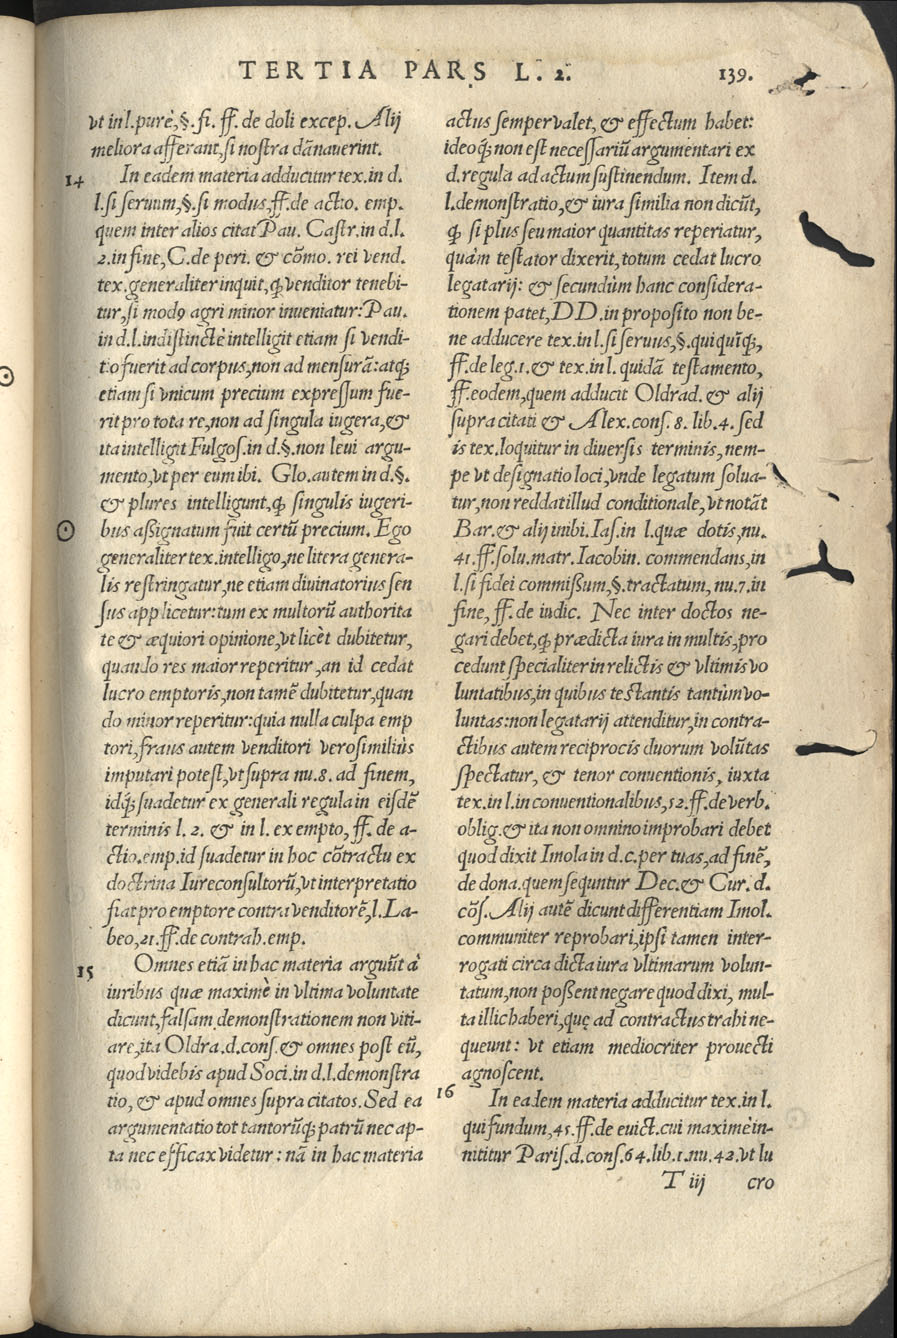 TERTIA PARS L. 2. 139.
vt in l.purè,§.fi. ff. de doli excep. Alij
meliora afferant,si nostra dānauerint.
14 In eadem materia adducitur tex.in d.
l.si seruum,§.si modus,ff.de actio. emp.
quem inter alios citat Pau. Castr.in d.l.
2.in fine,C.de peri. & cōmo. rei vend.
tex.generaliter inquit, ꝙ venditor tenebi-
tur,si modꝰ agri minor inueniatur:Pau.
in d.l.indistinctè intelligit etiam si vendi-
tio fuerit ad corpus,non ad mensurā:atqꝫ
etiam si vnicum precium expressum fue-
rit pro tota re,non ad singula iugera,&
ita intelligit Fulgos.in d.§.non leui argu-
mento,vt per eum ibi. Glo.autem in d.§.
& plures intelligunt,ꝙ singulis iugeri-
bus aßignatum fuit certū precium. Ego
generaliter tex.intelligo,ne litera genera-
lis restringatur,ne etiam diuinatorius sen
sus applicetur:tum ex multorū authorita
te & æquiori opinione,vt licèt dubitetur,
quando res maior reperitur,an id cedat
lucro emptoris,non tamē dubitetur,quan
do minor reperitur:quia nulla culpa emp
tori,fraus autem venditori verosimiliùs
imputari potest,vt supra nu.8. ad finem,
idqꝫ suadetur ex generali regula in eisdē
terminis l. 2. & in l. ex empto, ff. de a-
ctio.emp.id suadetur in hoc cōtractu ex
doctrina Iureconsultorū,vt interpretatio
fiat pro emptore contra venditorē,l.La-
beo,21.ff.de contrah.emp.
15 Omnes etiā in hac materia arguūt à
iuribus quæ maximè in vltima voluntate
dicunt,falsam demonstrationem non viti-
are,ita Oldra.d.cons.& omnes post eū,
quod videbis apud Soci.in d.l.demonstra
tio, & apud omnes supra citatos. Sed ea
argumentatio tot tantorūqꝫ patrū nec ap-
ta nec efficax videtur : nā in hac materia
actus semper valet, & effectum habet:
ideoqꝫ non est necessariū argumentari ex
d.regula ad actum sustinendum. Item d.
l.demonstratio,& iura similia non dicūt,
ꝙ si plus seu maior quantitas reperiatur,
quàm testator dixerit,totum cedat lucro
legatarij: & secundùm hanc considera-
tionem patet,DD.in proposito non be-
ne adducere tex.in l.si seruus,§.qui quīqꝫ,
ff.de leg.1.& tex.in l. quidā testamento,
ff.eodem,quem adducit Oldrad.& alij
supra citati & Alex.cons. 8. lib.4. sed
is tex.loquitur in diuersis terminis,nem-
pe vt designatio loci,vnde legatum solua-
tur,non reddat illud conditionale,vt notāt
Bar.& alij inibi.Ias.in l.quæ dotis,nu.
41.ff.solu.matr.Iacobin. commendans,in
l.si fidei commißum,§.tractatum,nu.7.in
fine, ff.de iudic. Nec inter doctos ne-
gari debet,ꝙ prædicta iura in multis,pro
cedunt specialiter in relictis & vltimis vo
luntatibus,in quibus testantis tantùm vo-
luntas:non legatarij attenditur,in contra-
ctibus autem reciprocis duorum volūtas
spectatur, & tenor conuentionis, iuxta
tex.in l.in conuentionalibus,52.ff.de verb.
oblig.& ita non omnino improbari debet
quod dixit Imola in d.c.per tuas,ad finē,
de dona.quem sequntur Dec.& Cur. d.
cōs. Alij autē dicunt differentiam Imol.
communiter reprobari,ipsi tamen inter-
rogati circa dicta iura vltimarum volun-
tatum,non poßent negare quod dixi, mul-
ta illic haberi,quę ad contractus trahi ne-
queunt : vt etiam mediocriter prouecti
agnoscent.
16 In eadem materia adducitur tex.in l.
qui fundum,45.ff.de euict.cui maximè in-
nititur Paris.d.cons.64.lib.1.nu.42.vt lu
T iij cro